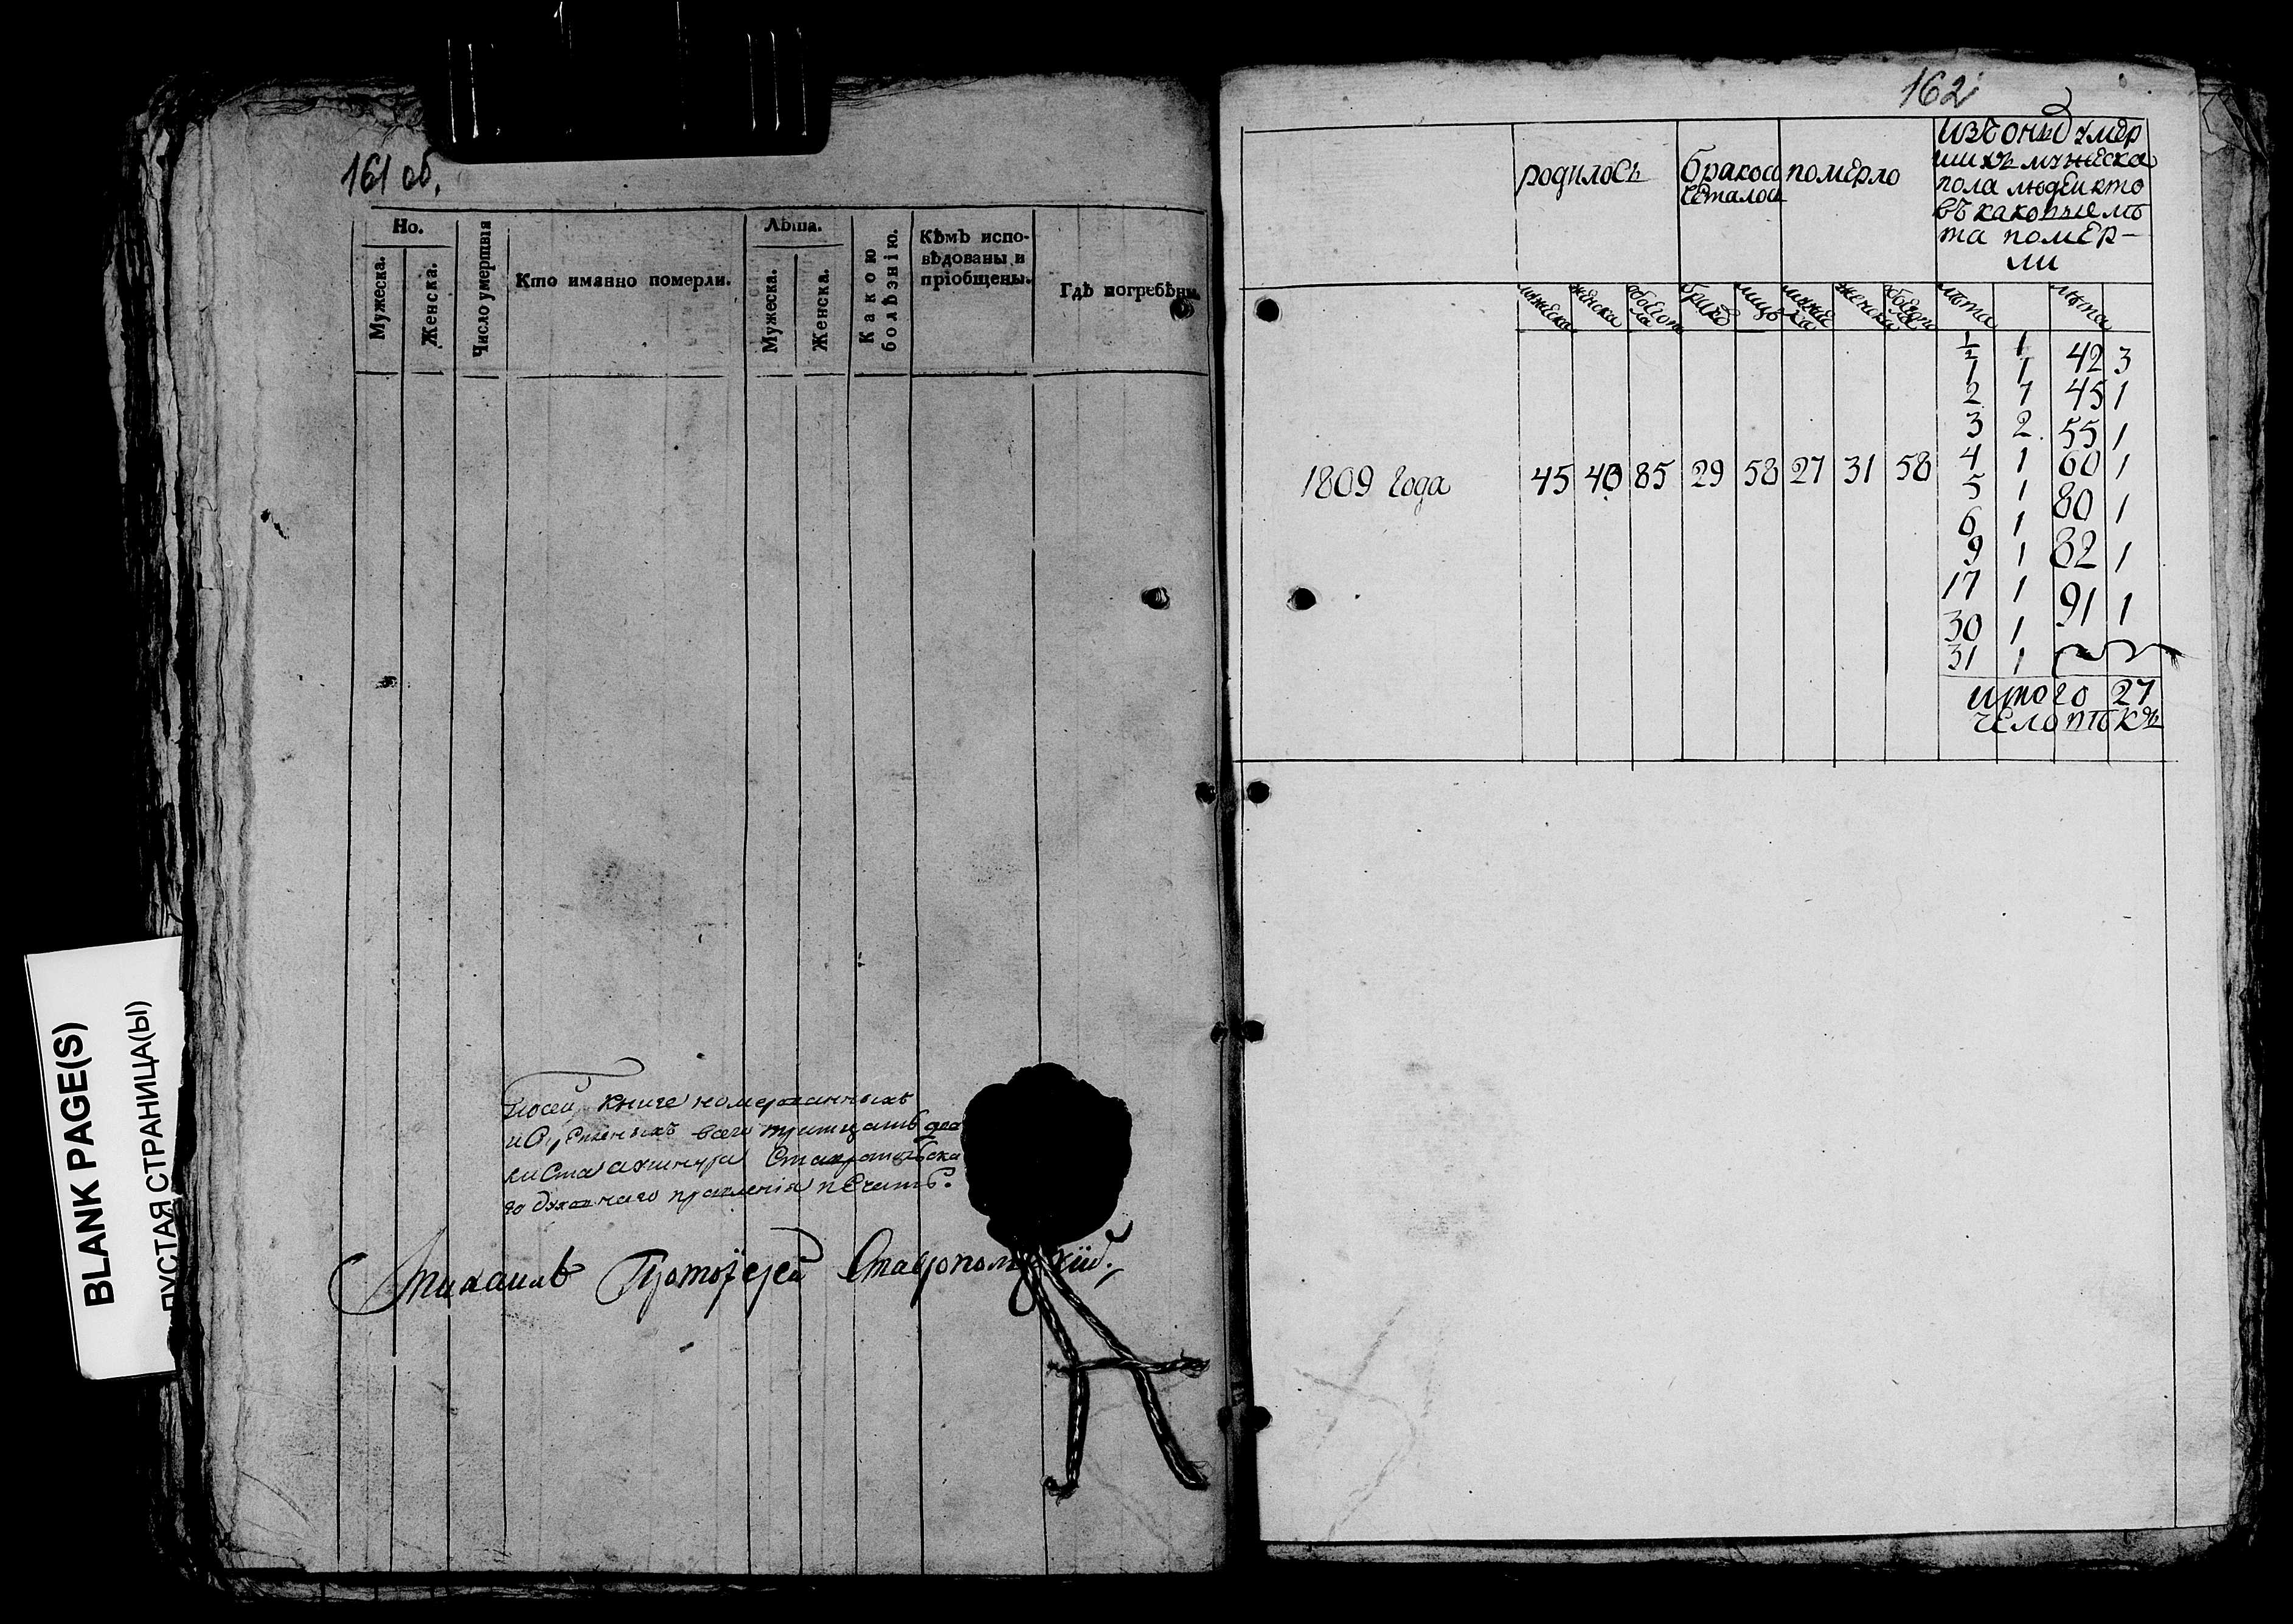 161 об.
Но.
Мужеска.
Женска.
Число умершвія
Кто имянно померли.
Лѣша.
Мужеска.
Женска.
Какою
болѣзнію.
Кѣмъ испо-
вѣдованы и
пріобщены.
Гдѣ погребѣны
посей книге номерованныхъ
всего тритцать два
листа Ставропольска
го духовнаго правленія печать.
Михаилъ Протоіерей Ставропольскій
BLANK PAGE(S)
ПУСТАЯ СТРАНИЦА(Ы)
162
родилось
бракосо
четалось
померло
изъ оныхъ умер
шихъ мужеска
пола людей кто
въ какое лѣ
та помер-
ли
мужеска
женска
обоего по
ла
браковъ
лицъ
мужес
ка
женска
обоего по
ла
лѣта
лѣта
1809 года 45 40 85 29 58 27 31 58
1/2 1 42 3
1 1 45 1
2 7 55 1
3 2 60 1
4 1 80 1
5 1 82 1
6 1 91 1
9 1
17 1
30 1
31 1
итого 27
человѣкъ